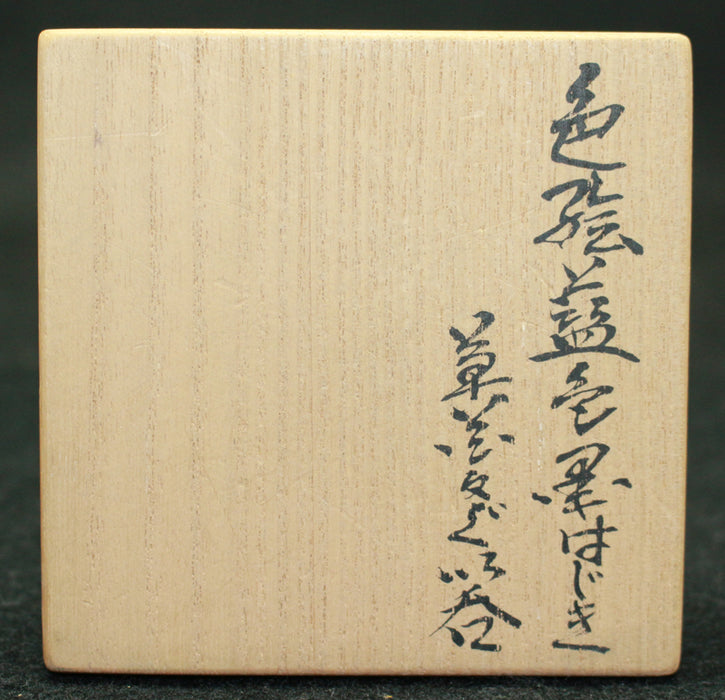 色絵藍色墨はじき
草花文ぐい呑